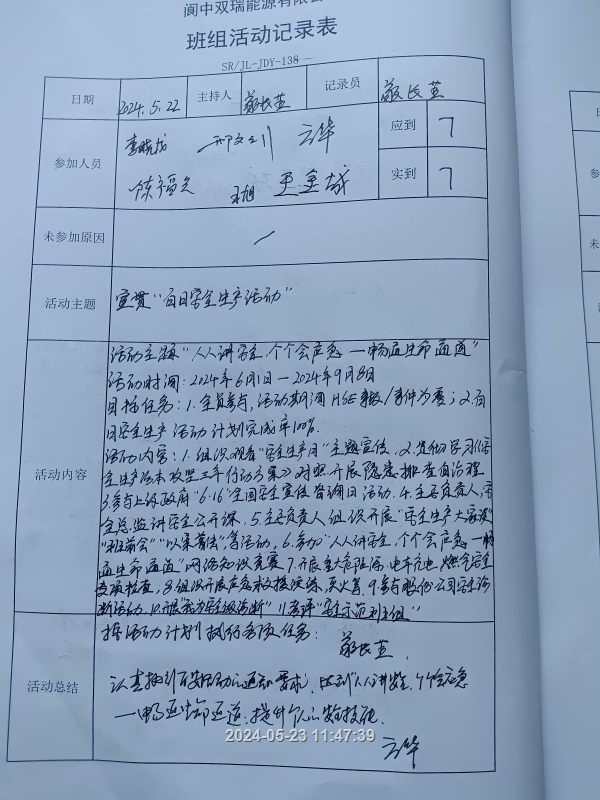 阆中双瑞能源有限公
班组活动记录表
SR/JL-JDY-138
日期 2024.5.22 主持人 记录员
参加人员 云华 应到 7
陈福久 王旭 实到 7
未参加原因 /
活动主题 宣贯"百日安全生产活动"
活动内容
活动主题"人人讲安全、个个会应急—畅通生命通道"
活动时间:2024年6月1日—2024年9月8日
目标任务:1.全员参与,活动期间HSE事故/事件为零;2.百
日安全生产活动计划完成率100%.
活动内容:1.组织观看"安全生产月"主题宣传,2.学习《安
全生产治本攻坚三年行动方案》对照开展隐患排查自治理
3.参与上级政府"6·16"全国安全宣传咨询日活动.4.主要负责人,安
全总监讲安全公开课.5.主要负责人组织开展"安全生产大家谈"
"班前会""以案普法"等活动,6.参加"人人讲安全,个个会应急—畅
通生命通道"网络知识竞赛7.开展重大危险源,电车充电,燃气安全
专项检查,8.组织开展应急救援演练,灭火等,9.参与股份公司安全诊
断活动.10.开展"我为安全做诊断"11.安全示范班组"
活动总结
按活动计划执行各项任务:
认真 百安活动的通知要求,做到人人讲安全,个个会应急
—畅通生命通道.提升个人的安全技能.
云华
2024-05-23 11:47:39